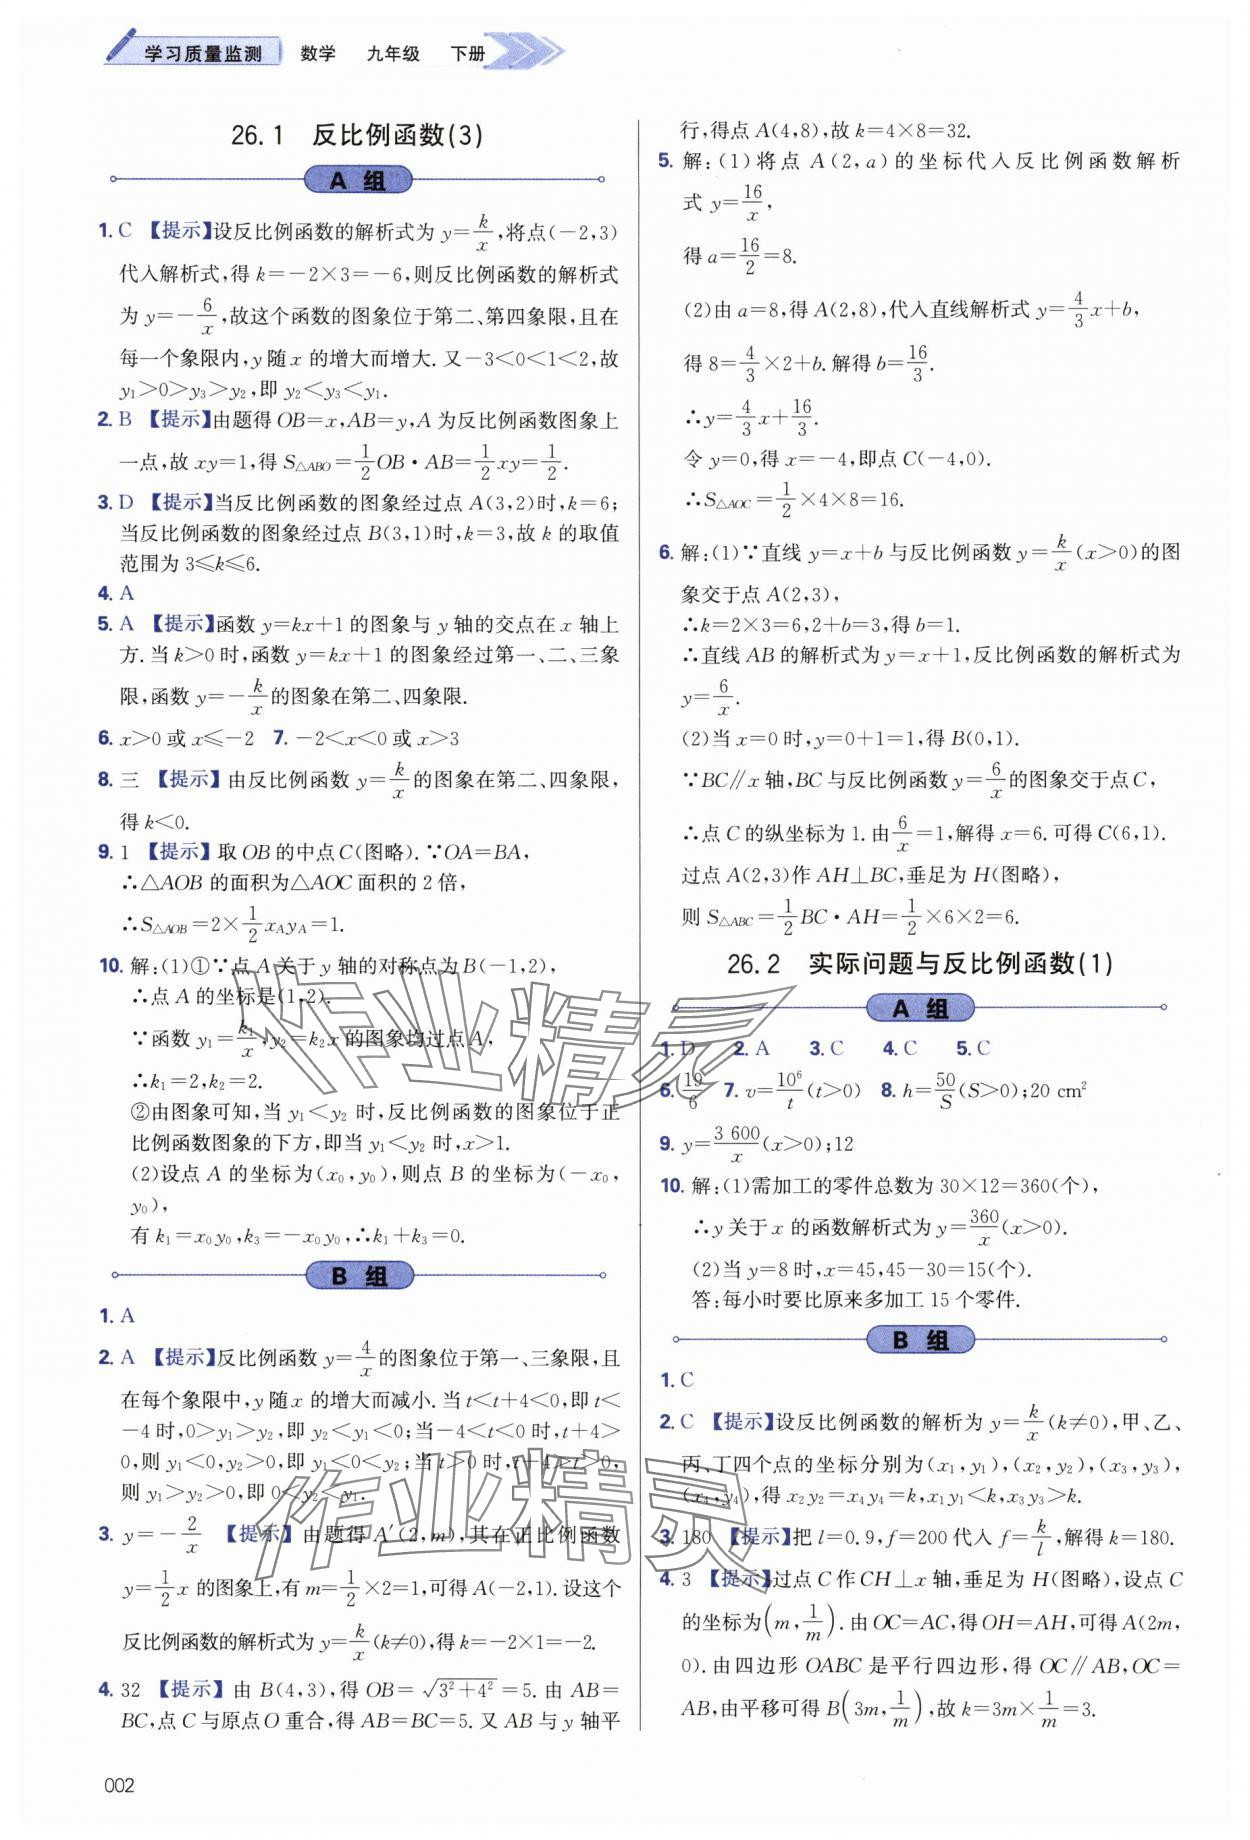 学习质量监测 数学 九年级 下册
26.1 反比例函数(3)
A 组
1. C 【提示】设反比例函数的解析式为 y=k/x,将点(-2,3)
代入解析式,得 k=-2×3=-6,则反比例函数的解析式
为 y=-6/x,故这个函数的图象位于第二、第四象限,且在
每一个象限内,y 随 x 的增大而增大.又-3<0<1<2,故
y₁>0>y₃>y₂,即 y₂<y₃<y₁.
2. B 【提示】由题得 OB=x,AB=y,A 为反比例函数图象上
一点,故 xy=1,得 S△ABO=1/2OB·AB=1/2xy=1/2.
3. D 【提示】当反比例函数的图象经过点 A(3,2)时,k=6;
当反比例函数的图象经过点 B(3,1)时,k=3,故 k 的取值
范围为 3≤k≤6.
4. A
5. A 【提示】函数 y=kx+1 的图象与 y 轴的交点在 x 轴上
方.当 k>0 时,函数 y=kx+1 的图象经过第一、二、三象
限,函数 y=-k/x的图象在第二、四象限.
6. x>0 或 x≤-2 7. -2<x<0 或 x>3
8. 三 【提示】由反比例函数 y=k/x的图象在第二、四象限,
得 k<0.
9. 1 【提示】取 OB 的中点 C(图略).∵OA=BA,
∴△AOB 的面积为△AOC 面积的 2 倍,
∴S△AOB=2×1/2xAyA=1.
10. 解:(1)①∵点 A 关于 y 轴的对称点为 B(-1,2),
∴点 A 的坐标是(1,2).
∵函数 y₁=k₁/x,y₂=k₂x 的图象均过点 A,
∴k₁=2,k₂=2.
②由图象可知,当 y₁<y₂ 时,反比例函数的图象位于正
比例函数图象的下方,即当 y₁<y₂ 时,x>1.
(2)设点 A 的坐标为(x₀,y₀),则点 B 的坐标为(-x₀,
y₀),
有 k₁=x₀y₀,k₃=-x₀y₀,∴k₁+k₃=0.
B 组
1. A
2. A 【提示】反比例函数 y=4/x的图象位于第一、三象限,且
在每个象限中,y 随 x 的增大而减小.当 t<t+4<0,即 t<
-4 时,0>y₁>y₂,即 y₂<y₁<0;当-4<t<0 时,t+4>
0,则 y₁<0,y₂>0,即 y₁<0<y₂;当 t>0 时,t+4>t>0,
则 y₁>y₂>0,即 0<y₂<y₁.
3. y=-2/x 【提示】由题得 A′(2,m),其在正比例函数
y=1/2x 的图象上,有 m=1/2×2=1,可得 A(-2,1).设这个
反比例函数的解析式为 y=k/x(k≠0),得 k=-2×1=-2.
4. 32 【提示】由 B(4,3),得 OB=√(3²+4²)=5.由 AB=
BC,点 C 与原点 O 重合,得 AB=BC=5.又 AB 与 y 轴平
行,得点 A(4,8),故 k=4×8=32.
5. 解:(1)将点 A(2,a)的坐标代入反比例函数解析
式 y=16/x,
得 a=16/2=8.
(2)由 a=8,得 A(2,8),代入直线解析式 y=4/3x+b,
得 8=4/3×2+b.解得 b=16/3.
∴y=4/3x+16/3.
令 y=0,得 x=-4,即点 C(-4,0).
∴S△AOC=1/2×4×8=16.
6. 解:(1)∵直线 y=x+b 与反比例函数 y=k/x(x>0)的图
象交于点 A(2,3),
∴k=2×3=6,2+b=3,得 b=1.
∴直线 AB 的解析式为 y=x+1,反比例函数的解析式为
y=6/x.
(2)当 x=0 时,y=0+1=1,得 B(0,1).
∵BC∥x 轴,BC 与反比例函数 y=6/x的图象交于点 C,
∴点 C 的纵坐标为 1.由6/x=1,解得 x=6.可得 C(6,1).
过点 A(2,3)作 AH⊥BC,垂足为 H(图略),
则 S△ABC=1/2BC·AH=1/2×6×2=6.
26.2 实际问题与反比例函数(1)
A 组
1. D 2. A 3. C 4. C 5. C
6. 19/6 7. v=10⁶/t(t>0) 8. h=50/S(S>0);20 cm²
9. y=3 600/x(x>0);12
10. 解:(1)需加工的零件总数为 30×12=360(个),
∴y 关于 x 的函数解析式为 y=360/x(x>0).
(2)当 y=8 时,x=45,45-30=15(个).
答:每小时要比原来多加工 15 个零件.
B 组
1. C
2. C 【提示】设反比例函数的解析为 y=k/x(k≠0),甲、乙、
丙、丁四个点的坐标分别为(x₁,y₁),(x₂,y₂),(x₃,y₃),
(x₄,y₄),得 x₂y₂=x₄y₄=k,x₁y₁<k,x₃y₃>k.
3. 180 【提示】把 l=0.9,f=200 代入 f=k/l,解得 k=180.
4. 3 【提示】过点 C 作 CH⊥x 轴,垂足为 H(图略),设点 C
的坐标为(m,1/m).由 OC=AC,得 OH=AH,可得 A(2m,
0).由四边形 OABC 是平行四边形,得 OC∥AB,OC=
AB,由平移可得 B(3m,1/m),故 k=3m×1/m=3.
作业精灵
作业精灵
002